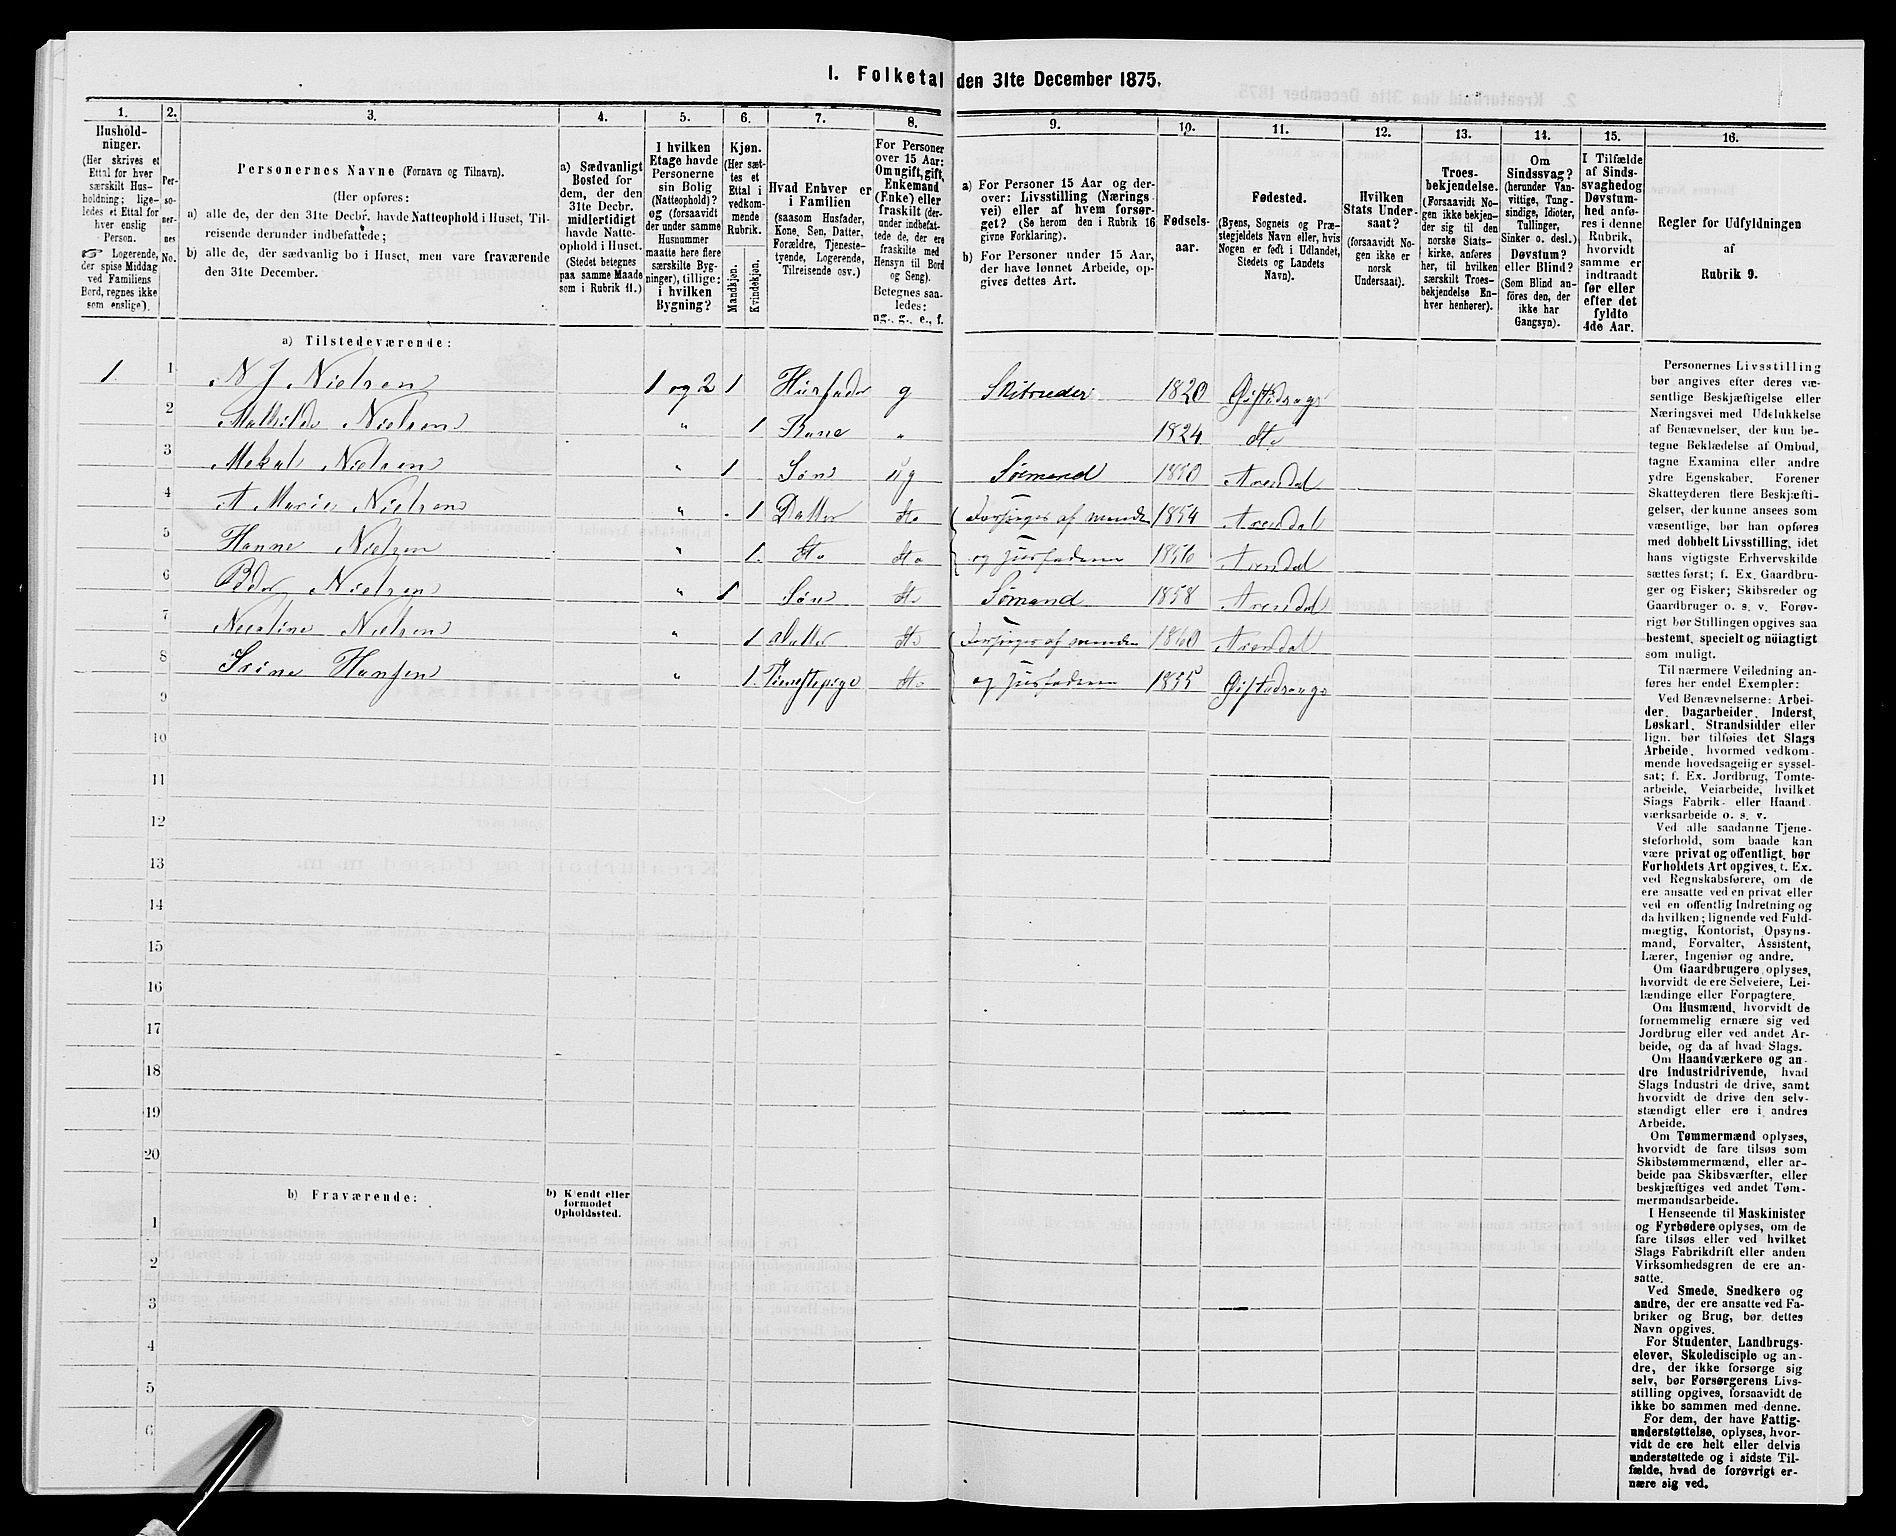 I. Folketal den 31te December 1875.
1. 2. 3. 4. 5. 6. 7. 8. 9. 10. 11. 12. 13. 14. 15. 16.
Hushold-
ninger.
(Her skrives et
Ettal for hver
særskilt Hus-
holdning; lige-
ledes et Ettal for
hver enslig
Person.
☞ Logerende,
der spise Middag
ved Familiens
Bord, regnes ikke
som enslige).
Per-
so-
ner-
nes
No.
Personernes Navne (Fornavn og Tilnavn).
(Her opføres:
a) alle de, der den 31te Decbr. havde Natteophold i Huset, Til-
reisende derunder indbefattede;
b) alle de, der sædvanlig bo i Huset, men vare fraværende
den 31te December.
a) Sædvanligt
Bosted for
dem, der den
31te Decbr.
midlertidigt
havde Natte-
ophold i Huset.
(Stedet betegnes
paa samme Maade
som i Rubrik 11.)
I hvilken
Etage havde
Personerne
sin Bolig
(Natteophold)?
og (forsaavidt
der under samme
Husnummer
maatte høre flere
særskilte Byg-
ninger), tillige:
i hvilken
Bygning?
Kjøn.
(Her sæt-
tes et
Ettal i
vedkom-
mende
Rubrik.
Mandkjøn.
Kvindekjøn.
Hvad Enhver er
i Familien
(saasom Husfader,
Kone, Søn, Datter,
Forældre, Tjeneste-
tyende, Logerende,
Tilreisende osv.)
For Personer
over 15 Aar:
Om ugift, gift,
Enkemand
(Enke) eller
fraskilt (der-
under indbefat-
tede de, der ere
fraskilte med
Hensyn til Bord
og Seng).
Betegnes saa-
ledes:
ug., g., e., f.
a) For Personer 15 Aar og der-
over: Livsstilling (Nærings-
vei) eller af hvem forsør-
get? (Se herom den i Rubrik 16
givne Forklaring).
b) For Personer under 15 Aar,
der have lønnet Arbeide, op-
gives dettes Art.
Fødsels-
aar.
Fødested.
(Byens, Sognets og Præ-
stegjeldets Navn eller, hvis
Nogen er født i Udlandet,
Stedets og Landets
Navn).
Hvilken
Stats Under-
saat?
(forsaavidt No-
gen ikke er
norsk
Undersaat).
Troes-
bekjendelse.
(Forsaavidt No-
gen ikke bekjen-
der sig til den
norske Stats-
kirke, anføres
her, til hvilken
særskilt Troes-
bekjendelse En-
hver henhører).
Om
Sindssvag?
(herunder Van-
vittige, Tung-
sindige, Idioter,
Tullinger,
Sinker o. desl.)
Døvstum?
eller Blind?
(Som Blind an-
føres den, der
ikke har
Gangsyn).
I Tilfælde
af Sinds-
svaghed og
Døvstum-
hed anfø-
res i denne
Rubrik,
hvorvidt
samme er
indtraadt
før eller
efter det
fyldte
4de Aar.
Regler for Udfyldningen
af
Rubrik 9.
a) Tilstedeværende:
1. 1 N J Nielsen 1 og 2 1 Husfader g Skibsreder 1820 Øiestadsogn
2 Mathilde Nielsen " 1 Kone " 1824 dto
3 Mekal Nielsen " 1 Søn ug Sømand 1850 Arendal
4 A Marie Nielsen " 1 Datter dto Forsørges af 1854 Arendal
5 Hanne Nielsen " 1. dto dto og Husfaderen 1856 Arendal
6 Peder Nielsen " 1 Søn dto Sømand 1858 Arendal
7 Nicoline Nielsen " 1 Datter dto Forsørges af 1860 Arendal
8 Trine Hansen " 1. Tienestepige dto og Husfaderen 1855 Øiestadsogn
9
10
11
12
13
14
15
16
17
18
19
20
b) Fraværende:
b) Kjendt eller
formodet
Opholdssted.
1
2
3
4
5
6
Personernes Livsstilling
bør angives efter deres væ-
sentlige Beskjæftigelse eller
Næringsvei med Udelukkelse
af Benævnelser, der kun be-
tegne Beklædelse af Ombud,
tagne Examina eller andre
ydre Egenskaber. Forener
Skatteyderen flere Beskjæfti-
gelser, der kunne ansees som
væsentlige, bør han opføres
med dobbelt Livsstilling, idet
hans vigtigste Erhvervskilde
sættes først; f. Ex. Gaardbru-
ger og Fisker; Skibsreder og
Gaardbruger o. s. v. Forøv-
rigt bør Stillingen opgives saa
bestemt, specielt og nöiagtigt
som muligt.
Til nærmere Veiledning an-
føres her endel Exempler:
Ved Benævnelserne: Arbei-
der, Dagarbeider, Inderst,
Løskarl, Strandsidder eller
lign. bør tilføies det Slags
Arbeide, hvormed vedkom-
mende hovedsagelig er syssel-
sat; f. Ex. Jordbrug, Tomte-
arbeide, Veiarbeide, hvilket
Slags Fabrik- eller Haand-
værksarbeide o. s. v.
Ved alle saadanne Tjene-
steforhold, som baade kan
være privat og offentligt, bør
Forholdets Art opgives, t. Ex.
ved Regnskabsførere, om de
ere ansatte ved en privat eller
ved en offentlig Indretning og
da hvilken; lignende ved Fuld-
mægtig, Kontorist, Opsyns-
mand, Forvalter, Assistent,
Lærer, Ingeniør og andre.
Om Gaardbrugere oplyses,
hvorvidt de ere Selveiere, Lei-
lændinge eller Forpagtere.
Om Husmænd, hvorvidt de
fornemmelig ernære sig ved
Jordbrug eller ved andet Ar-
beide, og da af hvad Slags.
Om Haandværkere og an-
dre Industridrivende, hvad
Slags Industri de drive, samt
hvorvidt de drive den selv-
stændigt eller ere i andres
Arbeide.
Om Tømmermænd oplyses,
hvorvidt de fare tilsøs som
Skibstømmermænd, eller ar-
beide paa Skibsværfter, eller
beskjæftiges ved andet Tøm-
mermandsarbeide.
I Henseende til Maskinister
og Fyrbødere oplyses, om de
fare tilsøs eller ved hvilket
Slags Fabrikdrift eller anden
Virksomhedsgren de ere an-
satte.
Ved Smede, Snedkere og
andre, der ere ansatte ved Fa-
briker og Brug, bør dettes
Navn opgives.
For Studenter, Landbrugs-
elever, Skoledisciple og an-
dre, der ikke forsørge sig
selv, bør Forsørgerens Livs-
stilling opgives, forsaavidt de
ikke bo sammen med denne.
For dem, der have Fattig-
understøttelse, oplyses, hvor-
vidt de ere helt eller delvis
understøttede og i sidste Til-
fælde, hvad de forøvrigt er-
nære sig ved.